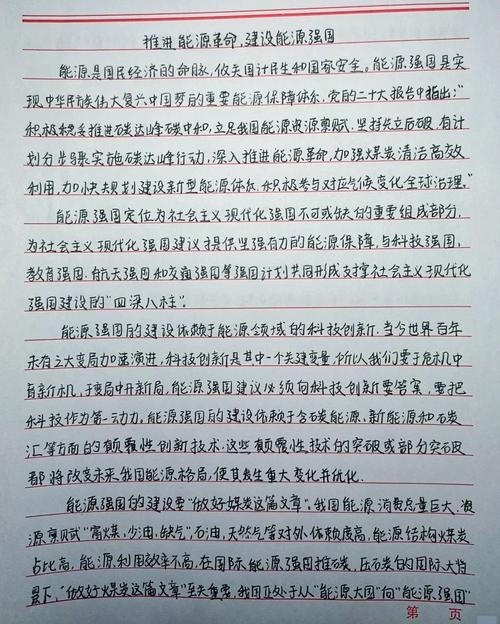 推进能源革命,建设能源强国
能源是国民经济的命脉,攸关国计民生和国家安全。能源强国是实
现中华民族伟大复兴中国梦的重要能源保障体系,党的二十大报告中指出:"
积极稳妥推进碳达峰碳中和,立足我国能源资源禀赋,坚持先立后破,有计
划分步骤实施碳达峰行动,深入推进能源革命,加强煤炭清洁高效
利用,加快规划建设新型能源体系,积极参与应对气候变化全球治理。"
能源强国定位为社会主义现代化强国不可或缺的重要组成部分,
为社会主义现代化强国建设提供坚强有力的能源保障,与科技强国,
教育强国,航天强国和交通强国等强国计划共同形成支撑社会主义现代化
强国建设的"四深八柱"。
能源强国的建设依赖于能源领域的科技创新。当今世界百年
未有之大变局加速演进,科技创新是其中一个关键变量,所以我们要于危机中
育新机,于变局中开新局,能源强国建设必须向科技创新要答案,要把
科技作为第一动力,能源强国的建设依赖于含碳能源,新能源和石炭
汇等方面的颠覆性创新技术,这些颠覆性技术的突破或部分突破
都将改变未来我国能源格局,使其发生重大变化并优化.
能源强国的建设要"做好煤炭这篇文章"。我国能源消费总量巨大,资
源禀赋"富煤,少油,缺气",石油,天然气等对外依赖度高,能源结构煤炭
占比高,能源利用效率不高,在国际能源强国推碳,压石炭的国际大背
景下,"做好煤炭这篇文章"至关重要,我国正处于从"能源大国"向"能源强国"
第 页